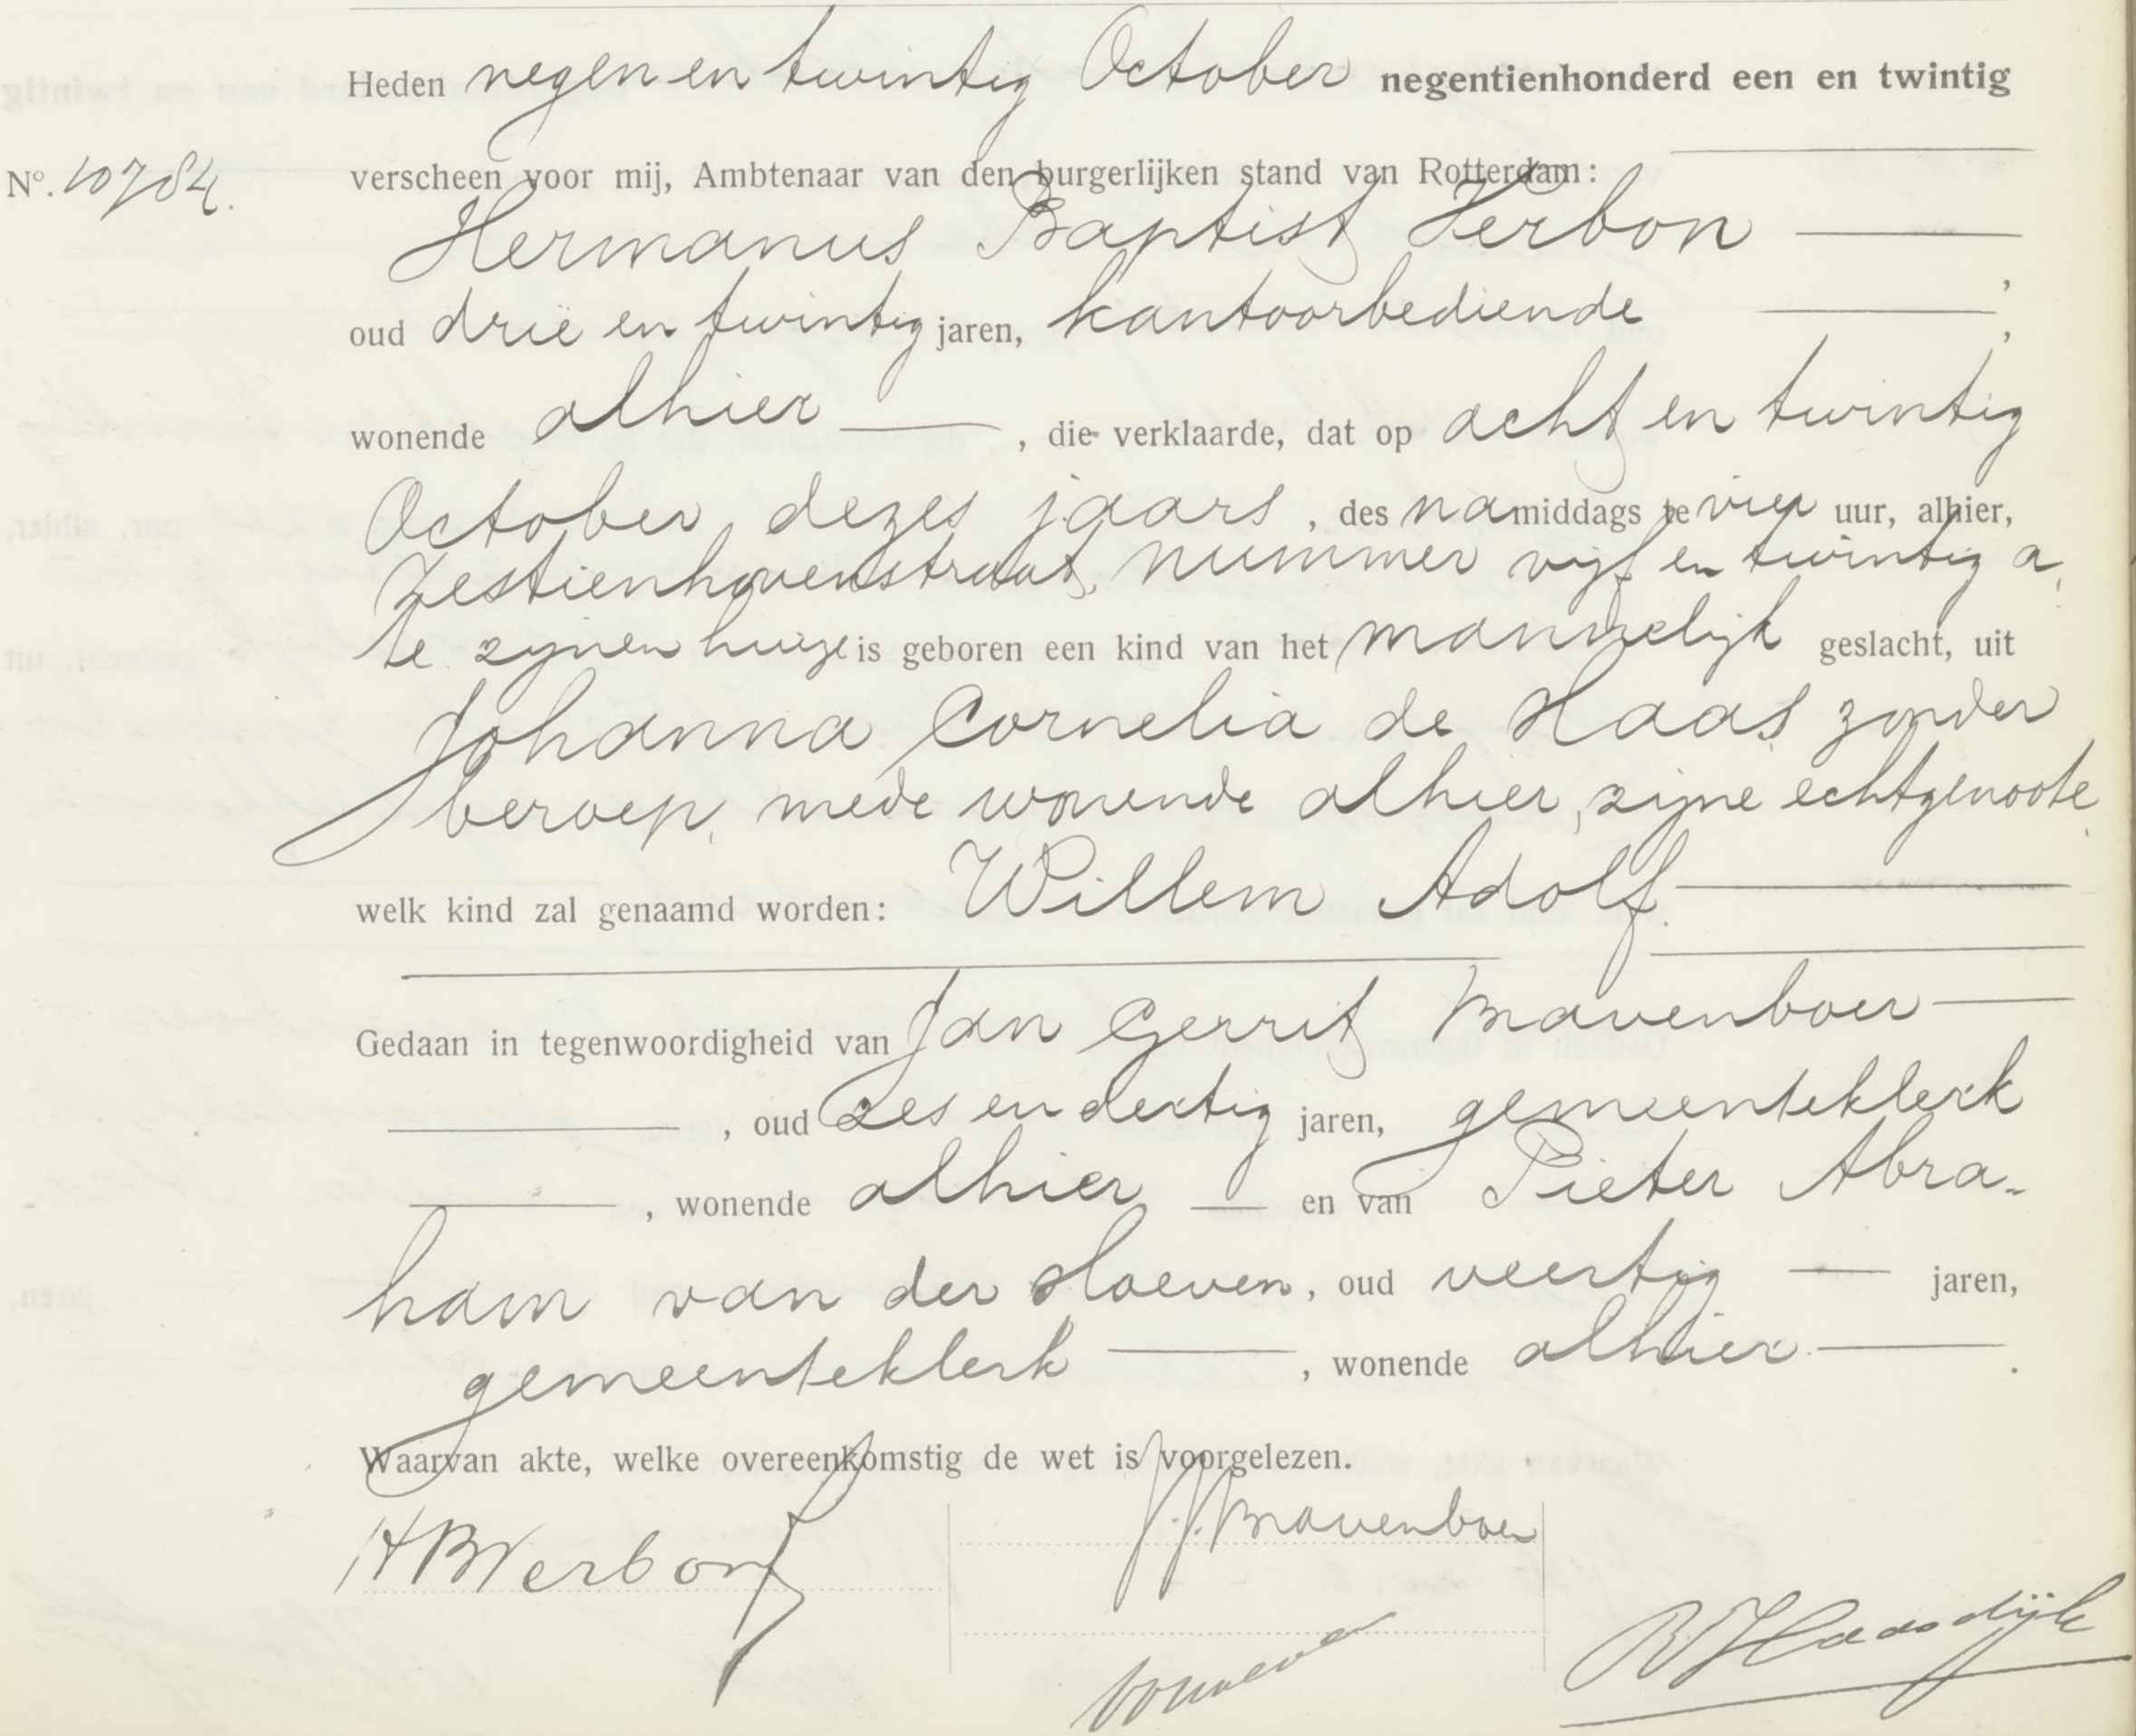 Heden negen en twintig October negentienhonderd een en twintig
No. 10784. verscheen voor mij, Ambtenaar van den burgerlijken stand van Rotterdam:
Hermanus Baptist Verbon ,
oud drie en twintig jaren, kantoorbediende ,
wonende alhier , die verklaarde, dat op acht en twintig
October dezes jaars, des namiddags te vier uur, alhier,
Zestienhovenstraat, nummer vijf en twintig a,
te zijnen huize is geboren een kind van het mannelijk geslacht, uit
Johanna Cornelia de Haas zonder
beroep, mede wonende alhier, zijne echtgenoote,
welk kind zal genaamd worden: Willem Adolf.
Gedaan in tegenwoordigheid van Jan Gerrit Mavenboer
, oud zes en dertig jaren, gemeenteklerk
, wonende alhier en van Pieter Abra-
ham van der Hoeven, oud veertig jaren,
gemeenteklerk , wonende alhier .
Waarvan akte, welke overeenkomstig de wet is voorgelezen.
HBVerbon J.G. Mavenboer